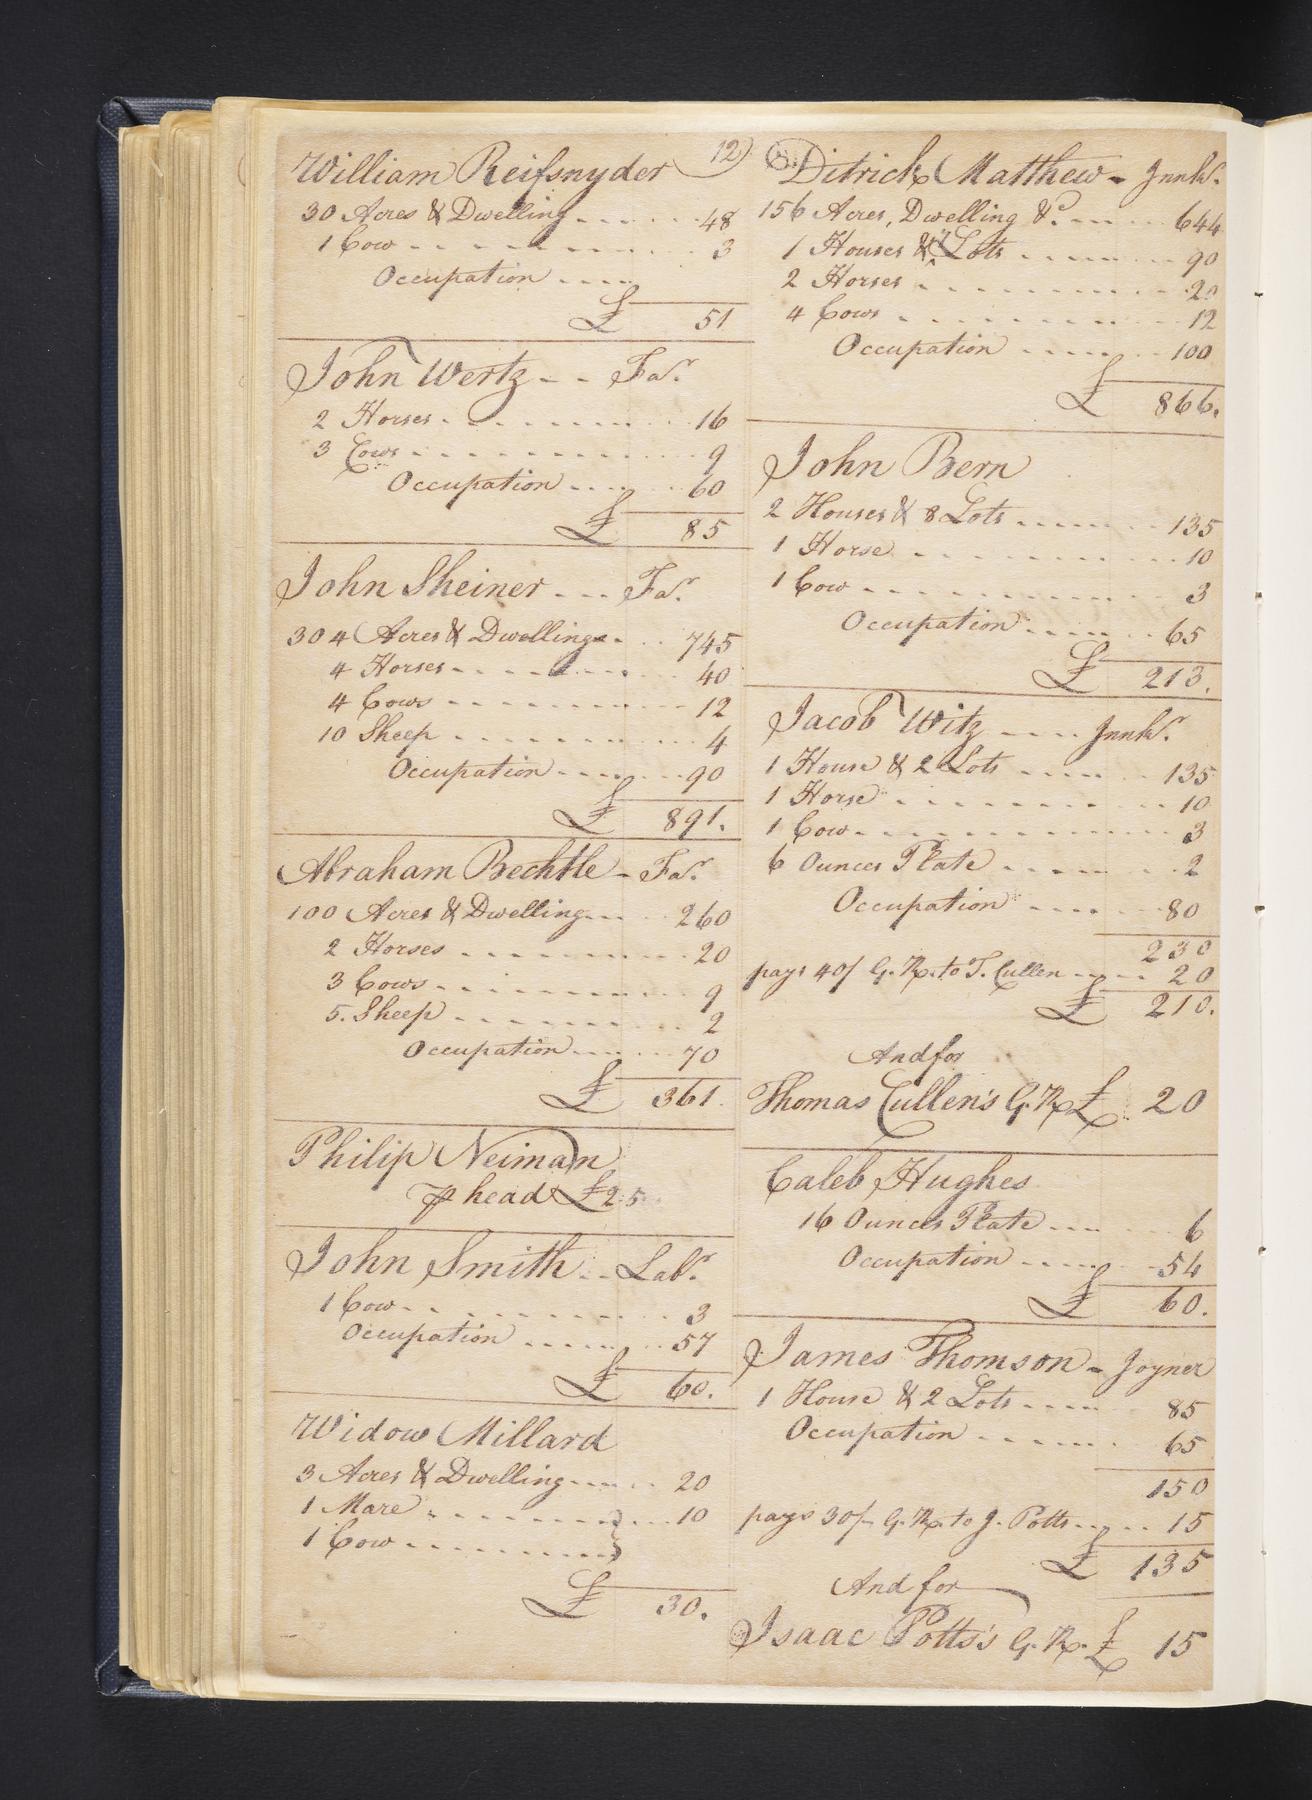 William Reifsnyder 12
30 Acres & Dwelling 48
1 Cow 3
Occupation
£ 51
John Wertz Far.
2 Horses 16
3 Cows 9
Occupation 60
£ 85
John Sheiner Far.
304 Acres & Dwellings 745
4 Horses 40
4 Cows 12
10 Sheep 4
Occupation 90
£ 891.
Abraham Bechtle Far.
100 Acres & Dwelling 260
2 Horses 20
3 Cows 9
5. Sheep 2
Occupation 70
£ 361.
Philip Neiman
℔ head £ 2.5
John Smith Labr.
1 Cow 3
Occupation 57
£ 60.
Widow Millard
3 Acres & Dwelling 20
1 Mare 10
1 Cow
£ 30.
Ditrick Matthew Innkr.
156 Acres, Dwelling &c. 644
1 Houses & 4 Lots 90
2 Horses 20
4 Cows 12
Occupation 100
£ 866.
John Bern
2 Houses & 8 Lots 135
1 Horse 10
1 Cow 3
Occupation 65
£ 213.
Jacob Witz Innkr.
1 House & 2 Lots 135
1 Horse 10
1 Cow 3
6 Ounces Plate 2
Occupation 80
230
pays 40/ G. R. to T. Cullen 20
£ 210.
And for
Thomas Cullen's G. R. £ 20
Caleb Hughes
16 Ounces Plate 6
Occupation 54
£ 60.
James Thomson Joyner
1 House & 2 Lots 85
Occupation 65
150
pays 30/ G. R. to J. Potts 15
£ 135
And for
Isaac Potts's G. R. £ 15